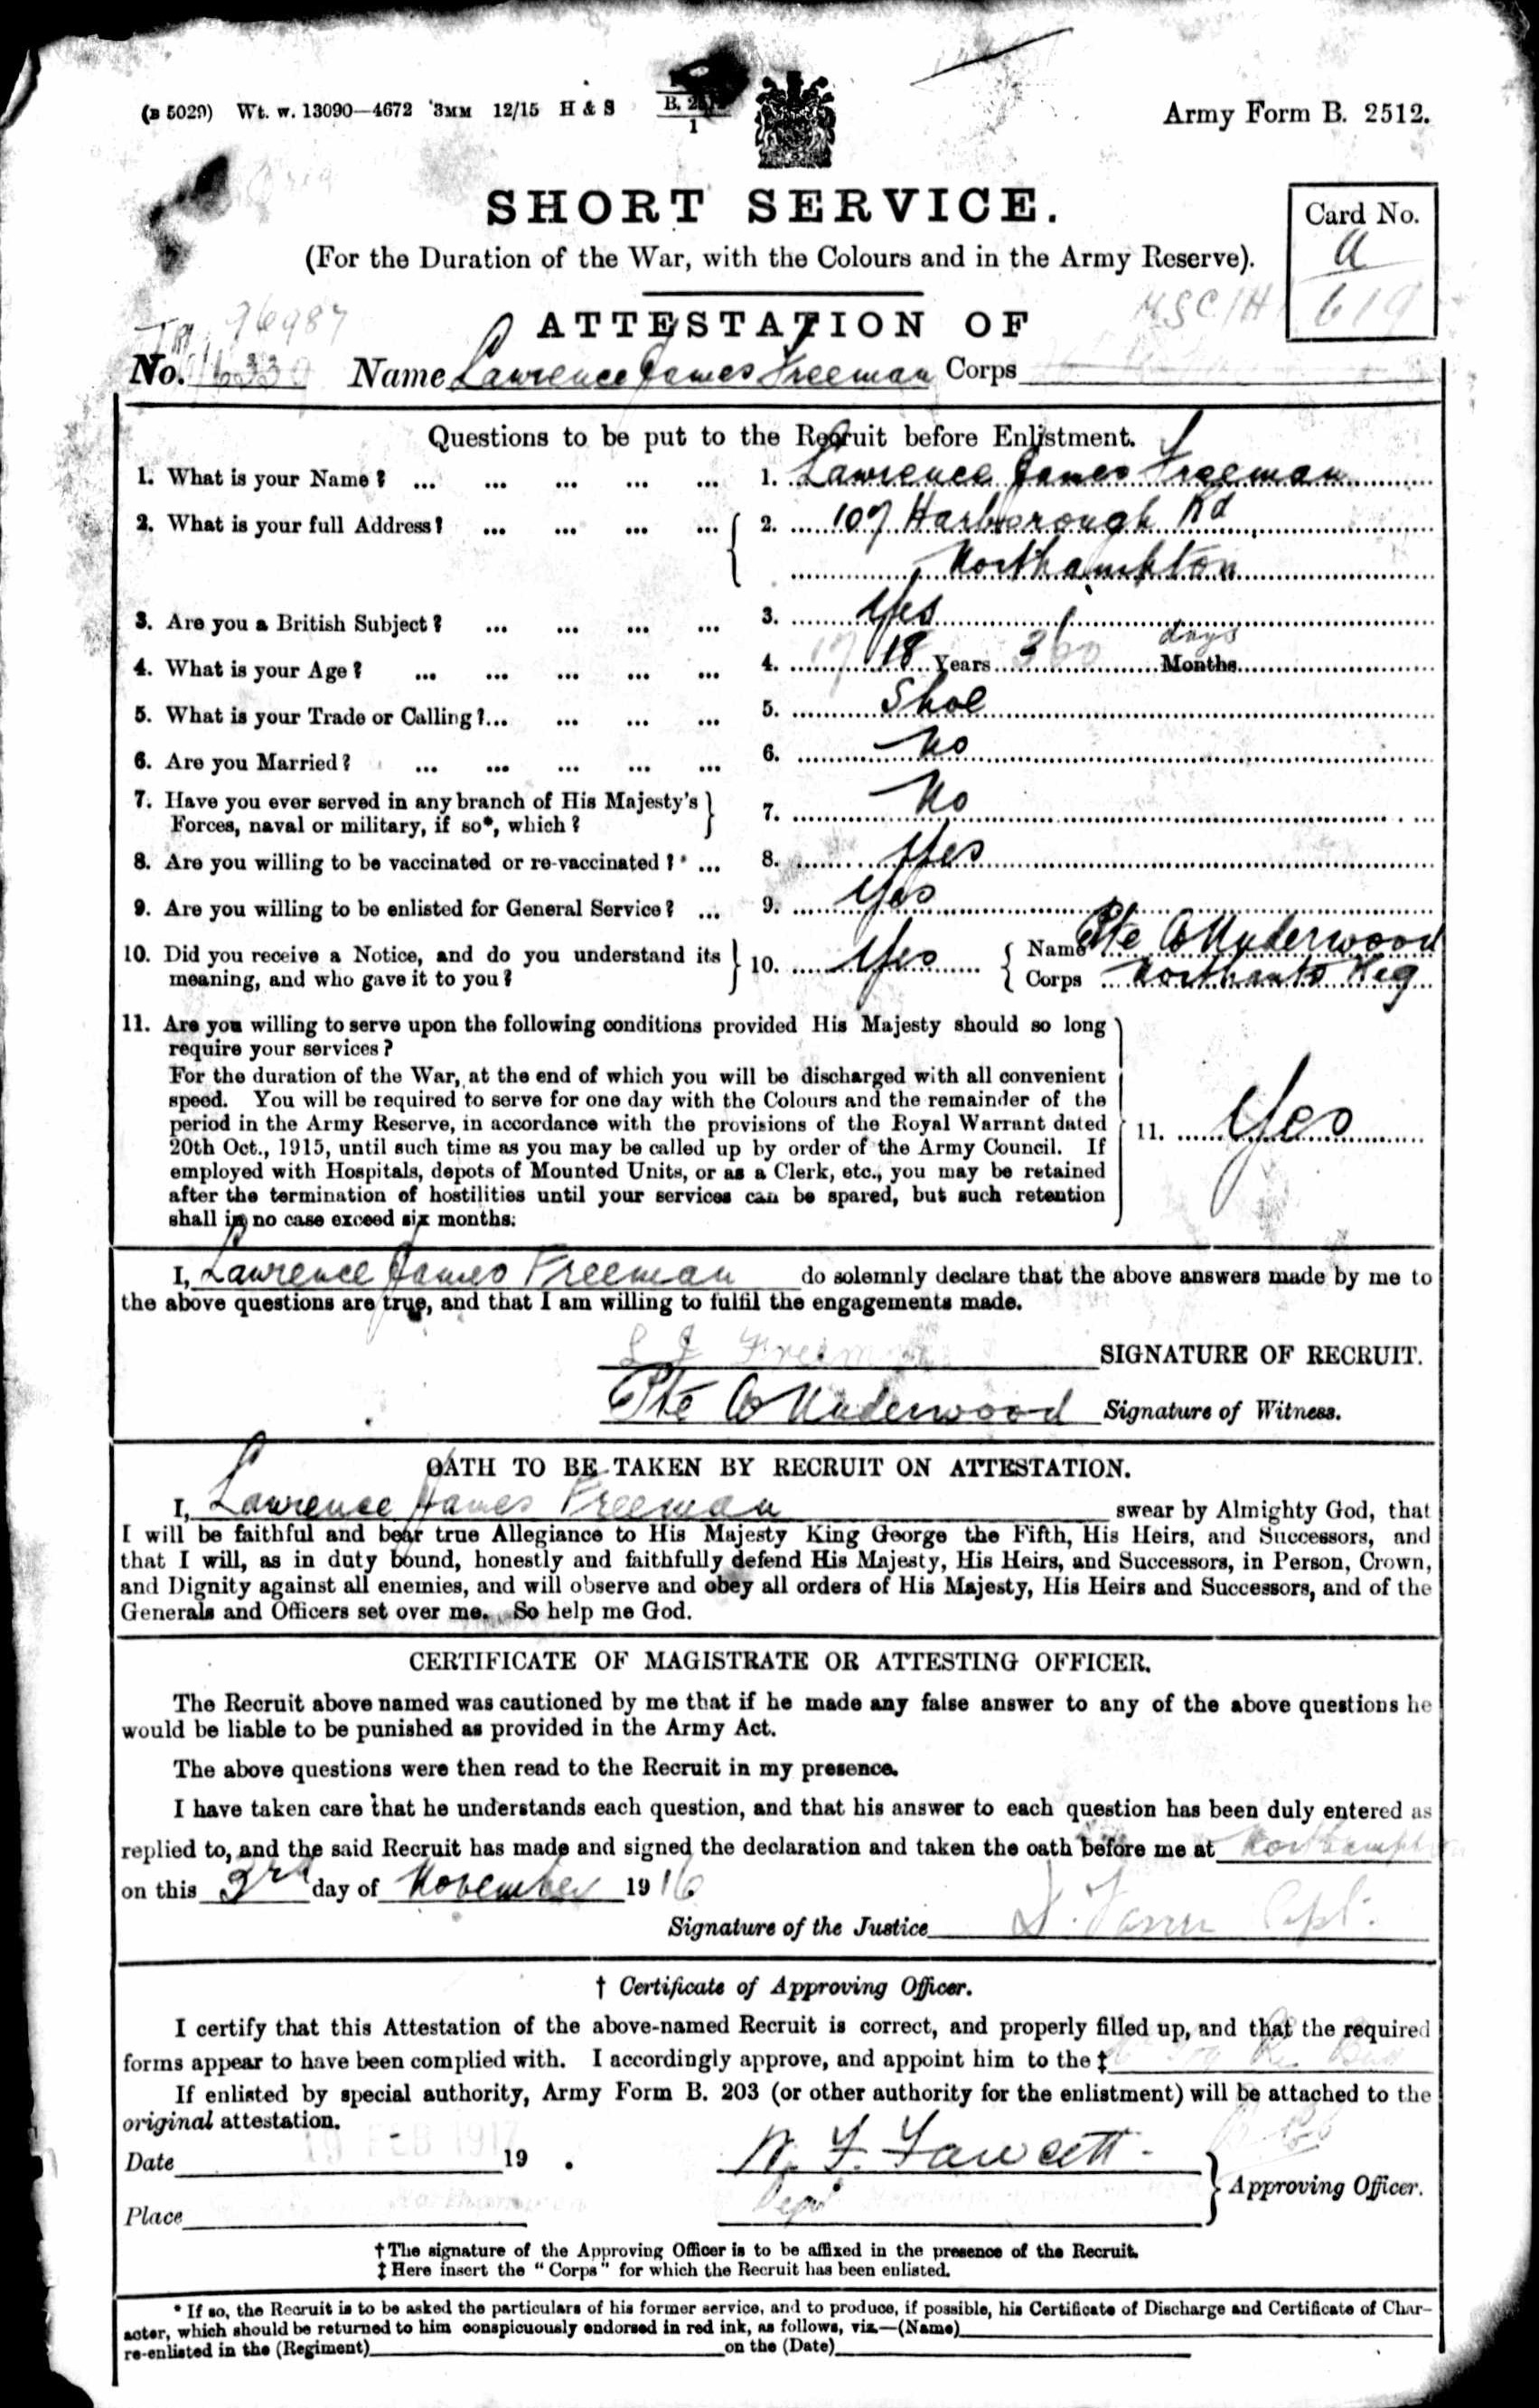 (B 5029) Wt. w. 13090—4672 3MM 12/15 H & S
B. 2512
1
Army Form B. 2512.
SHORT SERVICE.
(For the Duration of the War, with the Colours and in the Army Reserve).
Card No.
a
619
ATTESTATION OF
96987
No. Name Lawrence James Freeman Corps
Questions to be put to the Recruit before Enlistment.
1. What is your Name? ... ... ... ... ... 1. Lawrence James Freeman
2. What is your full Address? ... ... ... ... 2. 107 Harborough Rd
Northampton
3. Are you a British Subject? ... ... ... ... 3. Yes
4. What is your Age? ... ... ... ... ... 4. 17 18 Years 360 days Months
5. What is your Trade or Calling?... ... ... ... 5. Shoe
6. Are you Married? ... ... ... ... ... 6. No
7. Have you ever served in any branch of His Majesty's
Forces, naval or military, if so*, which? 7. No
8. Are you willing to be vaccinated or re-vaccinated? ... 8. Yes
9. Are you willing to be enlisted for General Service? ... 9. Yes
10. Did you receive a Notice, and do you understand its
meaning, and who gave it to you? 10. Yes Name Pte Underwood
Corps Northants Reg
11. Are you willing to serve upon the following conditions provided His Majesty should so long
require your services?
For the duration of the War, at the end of which you will be discharged with all convenient
speed. You will be required to serve for one day with the Colours and the remainder of the
period in the Army Reserve, in accordance with the provisions of the Royal Warrant dated
20th Oct., 1915, until such time as you may be called up by order of the Army Council. If
employed with Hospitals, depots of Mounted Units, or as a Clerk, etc., you may be retained
after the termination of hostilities until your services can be spared, but such retention
shall in no case exceed six months.
11. Yes
I, Lawrence James Freeman do solemnly declare that the above answers made by me to
the above questions are true, and that I am willing to fulfil the engagements made.
L J Freeman SIGNATURE OF RECRUIT.
Pte Underwood Signature of Witness.
OATH TO BE TAKEN BY RECRUIT ON ATTESTATION.
I, Lawrence James Freeman swear by Almighty God, that
I will be faithful and bear true Allegiance to His Majesty King George the Fifth, His Heirs, and Successors, and
that I will, as in duty bound, honestly and faithfully defend His Majesty, His Heirs, and Successors, in Person, Crown,
and Dignity against all enemies, and will observe and obey all orders of His Majesty, His Heirs and Successors, and of the
Generals and Officers set over me. So help me God.
CERTIFICATE OF MAGISTRATE OR ATTESTING OFFICER.
The Recruit above named was cautioned by me that if he made any false answer to any of the above questions he
would be liable to be punished as provided in the Army Act.
The above questions were then read to the Recruit in my presence.
I have taken care that he understands each question, and that his answer to each question has been duly entered as
replied to, and the said Recruit has made and signed the declaration and taken the oath before me at Northampton
on this 3rd day of November 1916
Signature of the Justice Capt.
† Certificate of Approving Officer.
I certify that this Attestation of the above-named Recruit is correct, and properly filled up, and that the required
forms appear to have been complied with. I accordingly approve, and appoint him to the ‡
If enlisted by special authority, Army Form B. 203 (or other authority for the enlistment) will be attached to the
original attestation.
FEB 1917
Date 19 .
W. F. Fawcett
Approving Officer.
Place
† The signature of the Approving Officer is to be affixed in the presence of the Recruit.
‡ Here insert the "Corps" for which the Recruit has been enlisted.
* If so, the Recruit is to be asked the particulars of his former service, and to produce, if possible, his Certificate of Discharge and Certificate of Char-
acter, which should be returned to him conspicuously endorsed in red ink, as follows, viz.—(Name)
re-enlisted in the (Regiment) on the (Date)